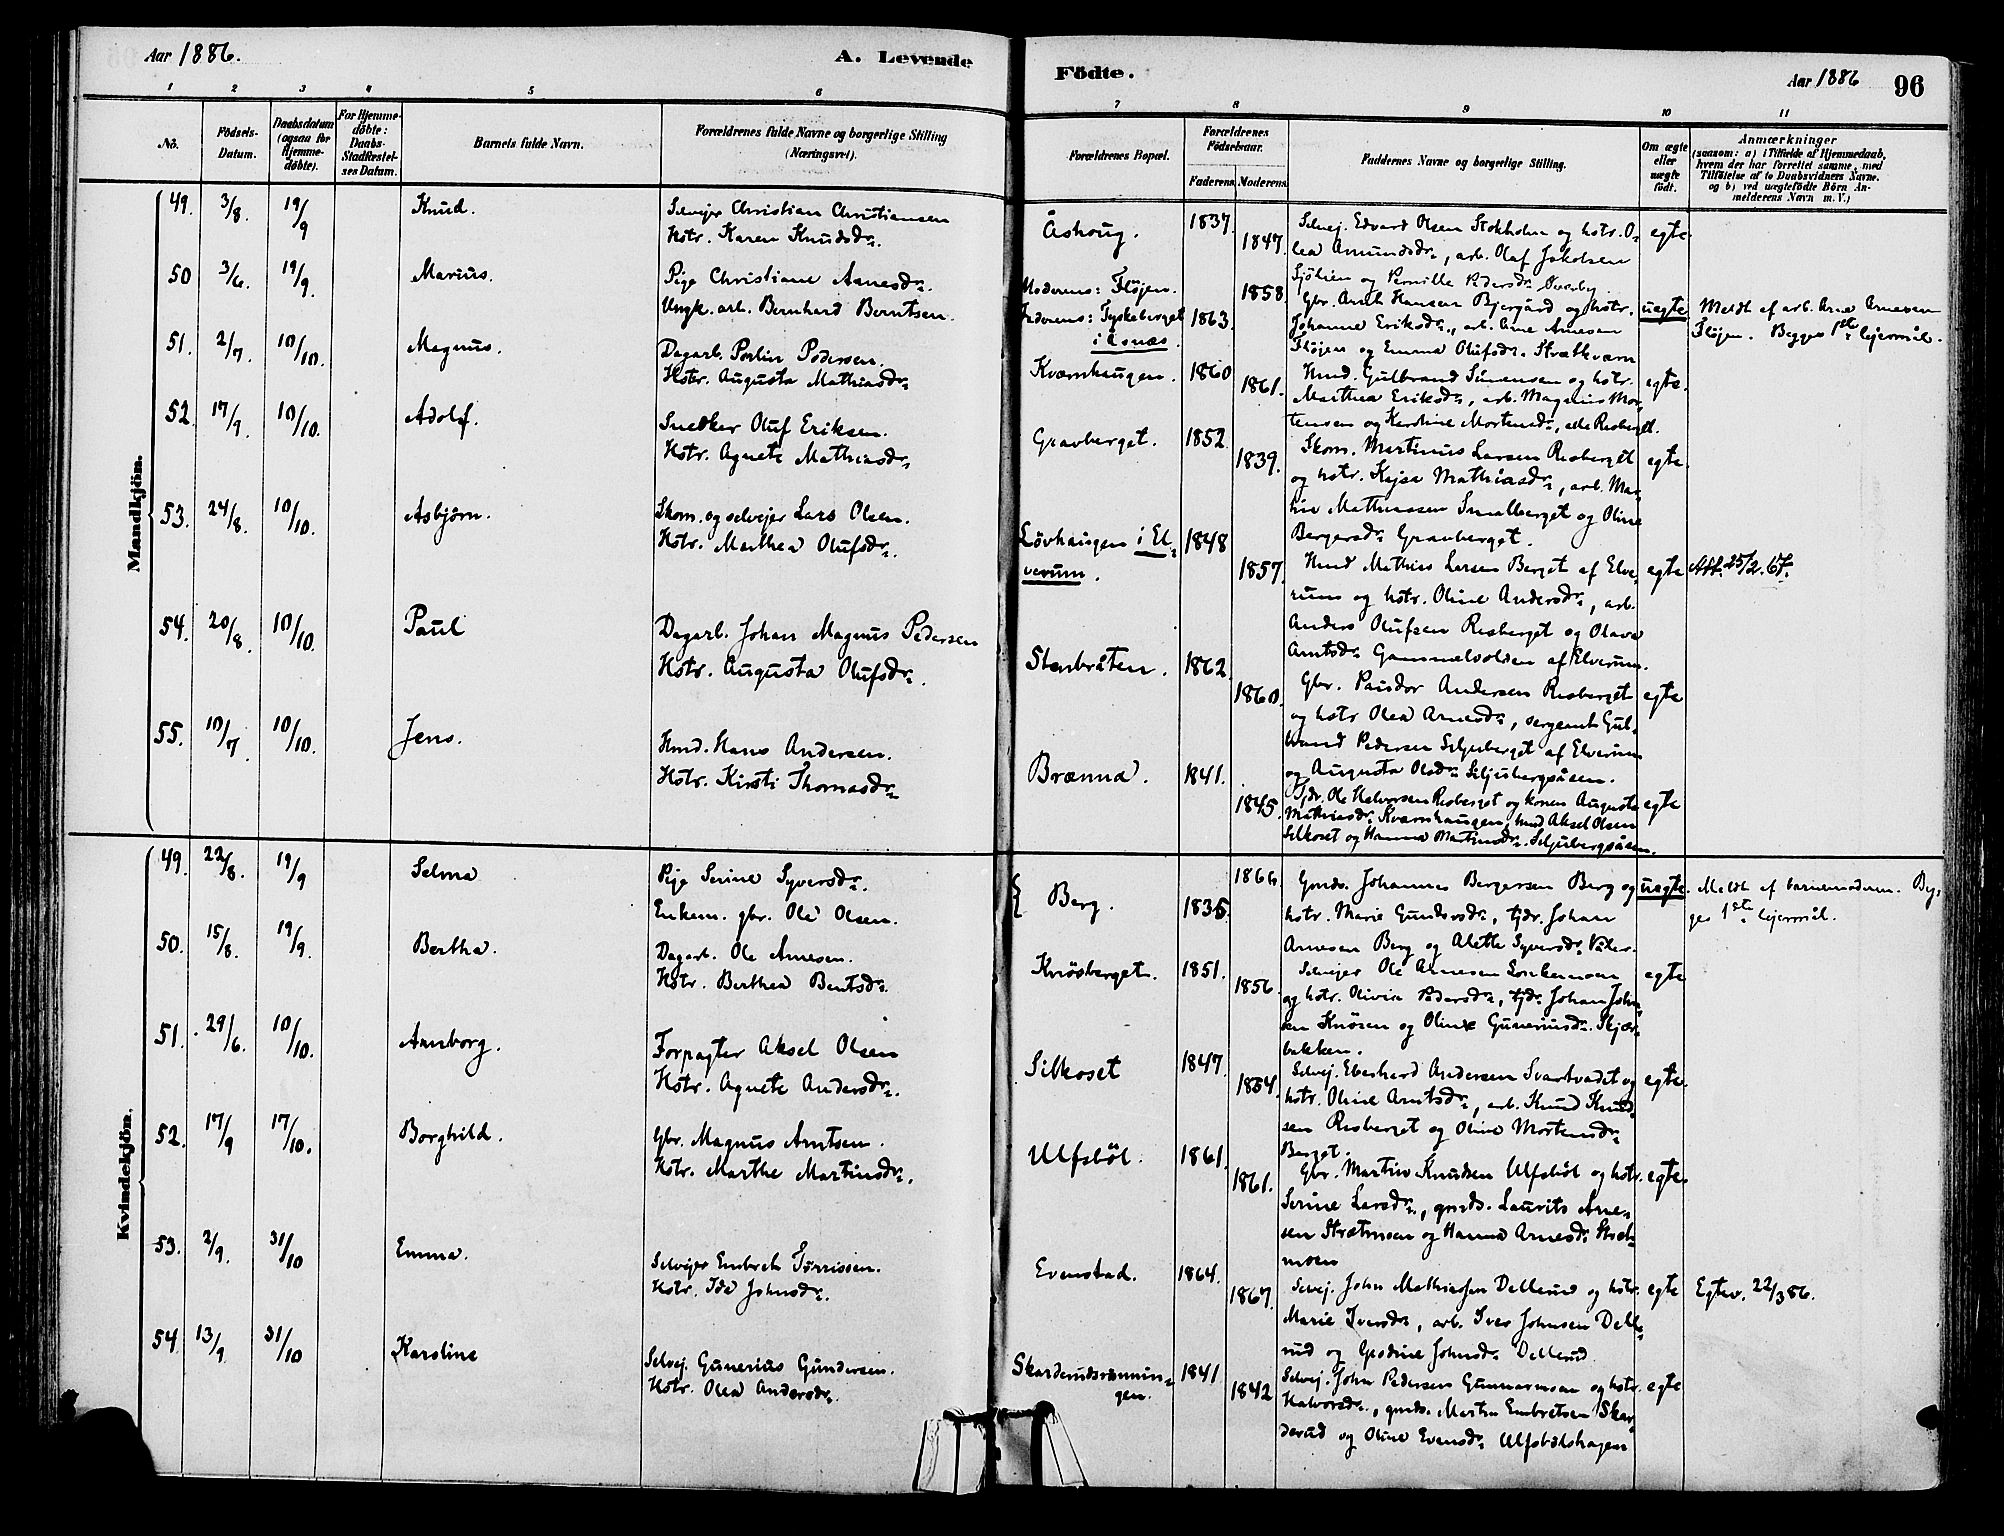 Aar 1886.
A. Levende
Födte.
Aar 1886
96
1 2 3 4 5 6 7 8 9 10 11
No.
Födsels-
Datum.
Daabsdatum
(ogsaa for
Hjemme-
döbte).
For Hjemme-
döbte:
Daabs-
Stadfæstel-
ses Datum.
Barnets fulde Navn.
Forældrenes fulde Navne og borgerlige Stilling
(Næringsvei).
Forældrenes Bopæl.
Forældrenes
Födselsaar.
Faderens. Moderens.
Faddernes Navne og borgerlige Stilling.
Om ægte
eller
uægte
födt.
Anmærkninger
(saasom: a) i Tilfælde af Hjemmedaab,
hvem der har forrettet samme, med
Tilföielse af to Daabsvidners Navne.
og b) ved uægtefödte Börn An-
melderens Navn m. V.)
Mandkjön.
49. 3/8. 19/9 Knud.
Selvejer Christian Christiansen
Hstr. Karen Knudsdr.
Åshoug. 1837. 1847.
Selvej. Edvard Olsen Stokholm og hstr. O-
lea Amundsdr., arb. Olaf Jakobsen
Sjølien og Pernille Pedersdr. Overby.
egte.
50 3/6. 19/9. Marius.
Pige Christiane Arnesdr.
Ungk. arb. Bernhard Berntsen.
Moderens: Fløjen.
Faderens: Tyskeberget
i Åsnæs.
1863. 1858.
Gbr. Arnt Hansen Bjergård og hstr.
Johanne Eriksdr., arb. Arne Arnesen
Fløjen og Emma Olufsdr. Strætkværn
uegte
Meldt af arb. Arne Arnesen
Fløjen. Begges 1ste lejermål.
51. 2/7. 10/10. Magnus.
Dagarb. Peder Pedersen.
Hstr. Augusta Mathiasdr.
Kværnhaugen. 1860 1861.
Hmd. Gulbrand Simensen og hstr.
Marthea Eriksdr., arb. Magnus Mor-
tensen og Karoline Mortensdr., alle Risberget.
egte.
52. 17/9. 10/10. Adolf.
Snedker Oluf Eriksen.
Hstr. Agnete Mathiasdr.
Gravberget. 1852. 1839.
Skom. Martinus Larsen Risberget
og hstr. Kajsa Mathiasdr., arb. Mar-
tin Mathiassen Smalberget og Oline
Bergersdr. Gravberget.
egte.
53. 24/8. 10/10. Asbjørn.
Skom. og selvejer Lars Olsen.
Hstr. Marthea Olufsdr.
Løvhaugen i El-
verum.
1848 1857.
Hmd Mathias Larsen Berget af Elve-
rum og hstr. Oline Andersdr., arb.
Anders Olufsen Risberget og Olava
Arntsdr. Gammelvolden af Elverum.
egte
Att. 25/2.67.
54. 20/8. 10/10. Paul
Dagarb. Johan Magnus Pedersen
Hstr. Augusta Olufsdr.
Stenbråten. 1862. 1860.
Gbr. Andersen Risberget
og hstr Olea Arnesdr., sergeant Gul-
brand Pedersen Siljuberget af Elverum
og Augusta Olsdr. Siljubergsåsen.
egte
55. 10/7. 10/10. Jens.
Hmd. Hans Andersen.
Hstr. Kirsti Thomasdr.
Brænna. 1841. 1845.
Gbr. Ole Halvorsen Risberget og konen Augusta
Mathiasdr. Kværnhaugen, hmd Aksel Olsen
Silkoset og Hanna Martinsdr. Siljubergsåsen.
egte
Kvindekjön.
49. 22/8. 19/9 Selma
Pige Serine Syversdr.
Enkem. gbr. Ole Olsen.
Berg. 1866. 1835.
Gmds. Johannes Bergersen Berg og
hstr. Marie Gundersdr., tjdr. Johan
Arnesen Berg og Alette Syversdr. Våler.
uegte.
Meldt af barnemoderen. Beg-
ges 1ste lejermål.
50. 15/8. 19/9. Bertha.
Dagarb. Ole Arnesen.
Hstr. Berthea Berntsdr.
Knøsberget. 1851. 1856.
Selvejer Ole Arnesen
og hstr. Olivia Pedersdr., tjdr. Johan John-
sen Knøsen og Oline Guneriusdr. Skjær-
bekken.
egte
51. 29/6. 10/10. Arnborg.
Forpagter Aksel Olsen
Hstr. Agnete Andersdr.
Silkoset 1847. 1854.
Selvej. Eberhard Andersen Svartvadet og
hstr. Oline Arntsdr., arb. Knud Knud-
sen Risberget og Oline Mortensdr.
Berget.
egte.
52. 17/9 17/10. Borghild.
Gbr. Magnus Arntsen.
Hstr. Marthe Martinsdr.
Ulfsbøl. 1861. 1861.
Gbr. Martin Knudsen Ulfsbøl og hstr.
Serine Larsdr., gmds. Laurits Arne-
sen Strætmoen og Hanna Arnesdr. Stræt-
moen
egte.
53. 2/9. 31/10 Emma.
Selvejer Embret Tørrissen.
Hstr. Ida Johnsdr.
Evenstad. 1864. 1867.
Selvej. John Mathiassen Dellerud og hstr.
Marie Iversdr., arb. Iver Johnsen Delle-
rud og Johnsdr. Dellerud.
egte
Egtev. 22/3 86.
54. 13/9. 31/10 Karoline
Selvej. Gunerius Gundersen.
Hstr. Olea Andersdr.
Skarderudsrønnin-
gen.
1841. 1842
Selvej. John Pedersen Gunnarmoen og hstr.
Halvorsdr., gmds. Martin Embretsen Skar-
derud og Oline Evensdr. Ulfsbølshagen
egte